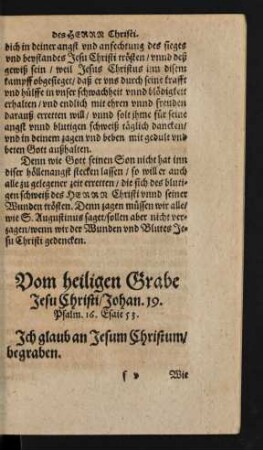 des HERRN Christi.
dich in deiner angst vnd anfechtung des sieges
vnd beystandes Jesu Christi trösten / vnnd deß
gewiß sein / weil Jesus Christus inn disem
kampff obgesieget / daß er vns durch seine krafft
vnd hülffe in vnser schwachheit vnnd blödigkeit
erhalten / vnd endlich mit ehren vnnd freuden
darauß erretten will / vnnd solt jhme für seine
angst vnnd blutigen schweiß täglich dancken /
vnd in deinem zagen vnd beben mit gedult vnd
beten Gott außhalten.
Denn wie Gott seinen Son nicht hat inn
diser höllenangst stecken lassen / so will er auch
alle zu gelegener zeit erretten / die sich des bluti-
gen schweiß des HERRN Christi vnnd seiner
Wunden trösten. Denn zagen müssen wir alle /
wie S. Augustinus saget / sollen aber nicht ver-
zagen / wenn wir der Wunden vnd Blutes Je-
su Christi gedencken.
Vom heiligen Grabe
Jesu Christi / Johan. 19.
Psalm. 16. Esaie 53.
Ich glaub an Jesum Christum /
begraben.
f v Wie